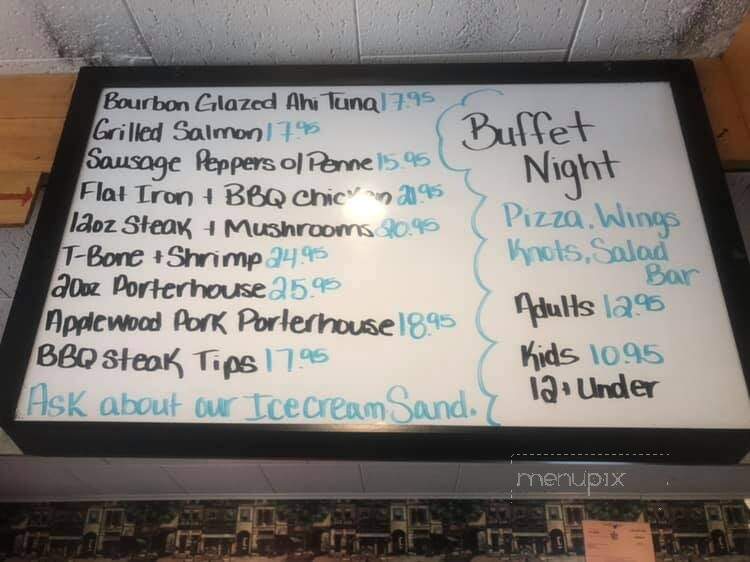 Bourbon Glazed Ahi Tuna 17.95
Grilled Salmon 17.95
Sausage Peppers o/ Penne 15.95
Flat Iron + BBQ Chicken 21.95
12oz Steak + Mushrooms 20.95
T-Bone + Shrimp 24.95
20oz Porterhouse 25.95
Applewood Pork Porterhouse 18.95
BBQ Steak Tips 17.95
Ask about our Icecream Sand.
Buffet
Night
Pizza, Wings
Knots, Salad
Bar
Adults 12.95
Kids 10.95
12 + Under
menupix